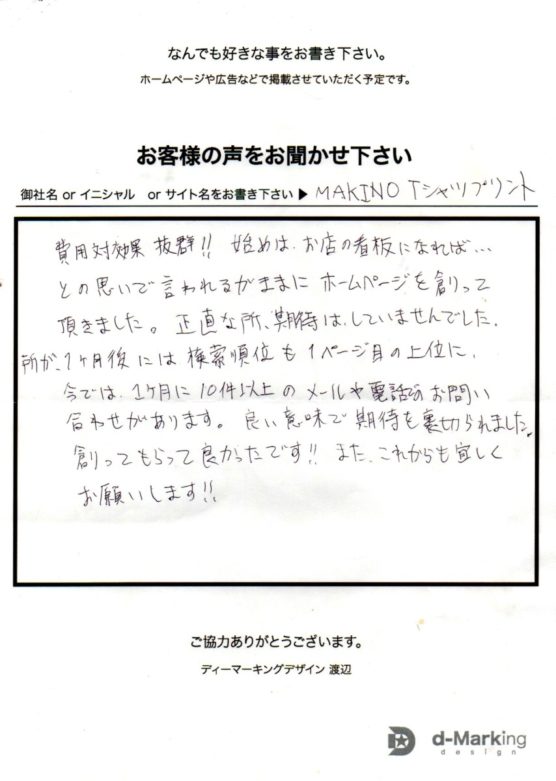 なんでも好きな事をお書き下さい。
ホームページや広告などで掲載させていただく予定です。
お客様の声をお聞かせ下さい
御社名 or イニシャル　or サイト名をお書き下さい▶ MAKINO Tシャツプリント
費用対効果 抜群!! 始めは、お店の看板になれば…
との思いで言われるがままに ホームページを創って
頂きました。正直な所、期待は、していませんでした。
所が、1ヶ月後には 検索順位も 1ページ目の上位に、
今では、1ヶ月に10件以上のメールや電話でのお問い
合わせがあります。良い意味で期待を裏切られました。
創ってもらって良かったです!! また、これからも宜しく
お願いします!!
ご協力ありがとうございます。
ディーマーキングデザイン 渡辺
d-Marking
design